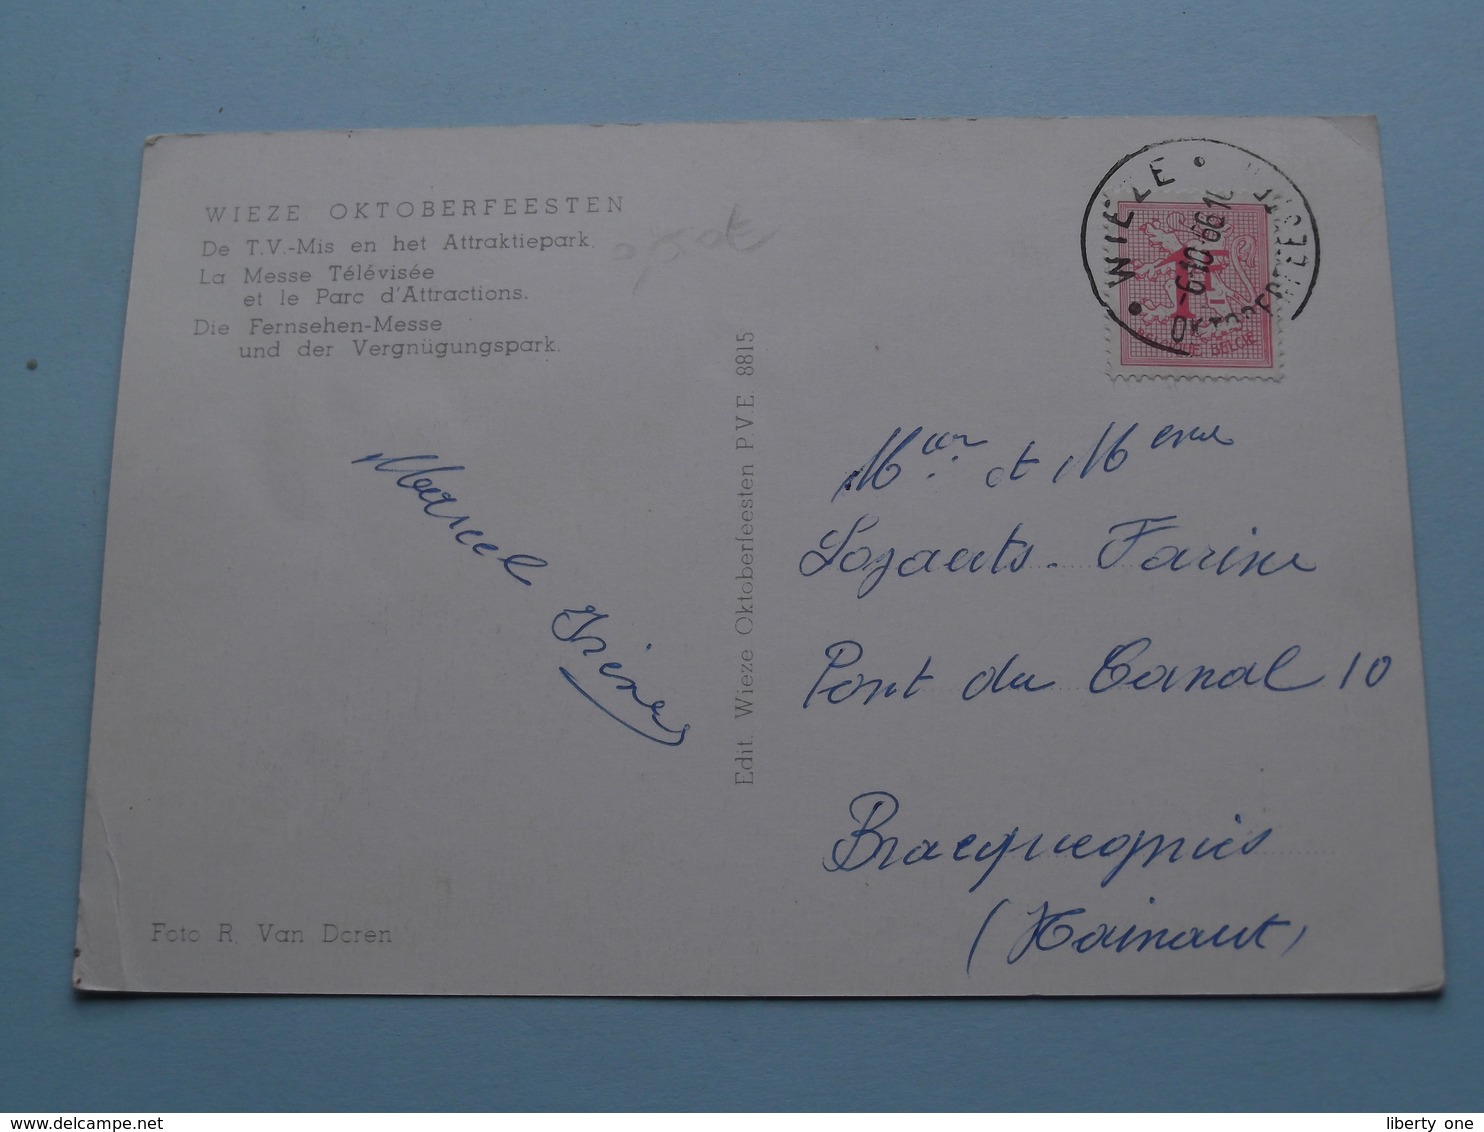 WIEZE OKTOBERFEESTEN
De T.V.-Mis en het Attraktiepark.
La Messe Télévisée
et le Parc d'Attractions.
Die Fernsehen-Messe
und der Vergnügungspark.
Marcel
Irène
Foto R. Van Doren
Edit. Wieze Oktoberfeesten P.V.E. 8815
• WIEZE •
-6-10-66
OKTOBERFEESTEN
1F
BELGIE
et Mme
Lozaerts - Farine
Pont du Canal 10
Bracquegnies
(Hainaut)
www.delcampe.net
liberty one